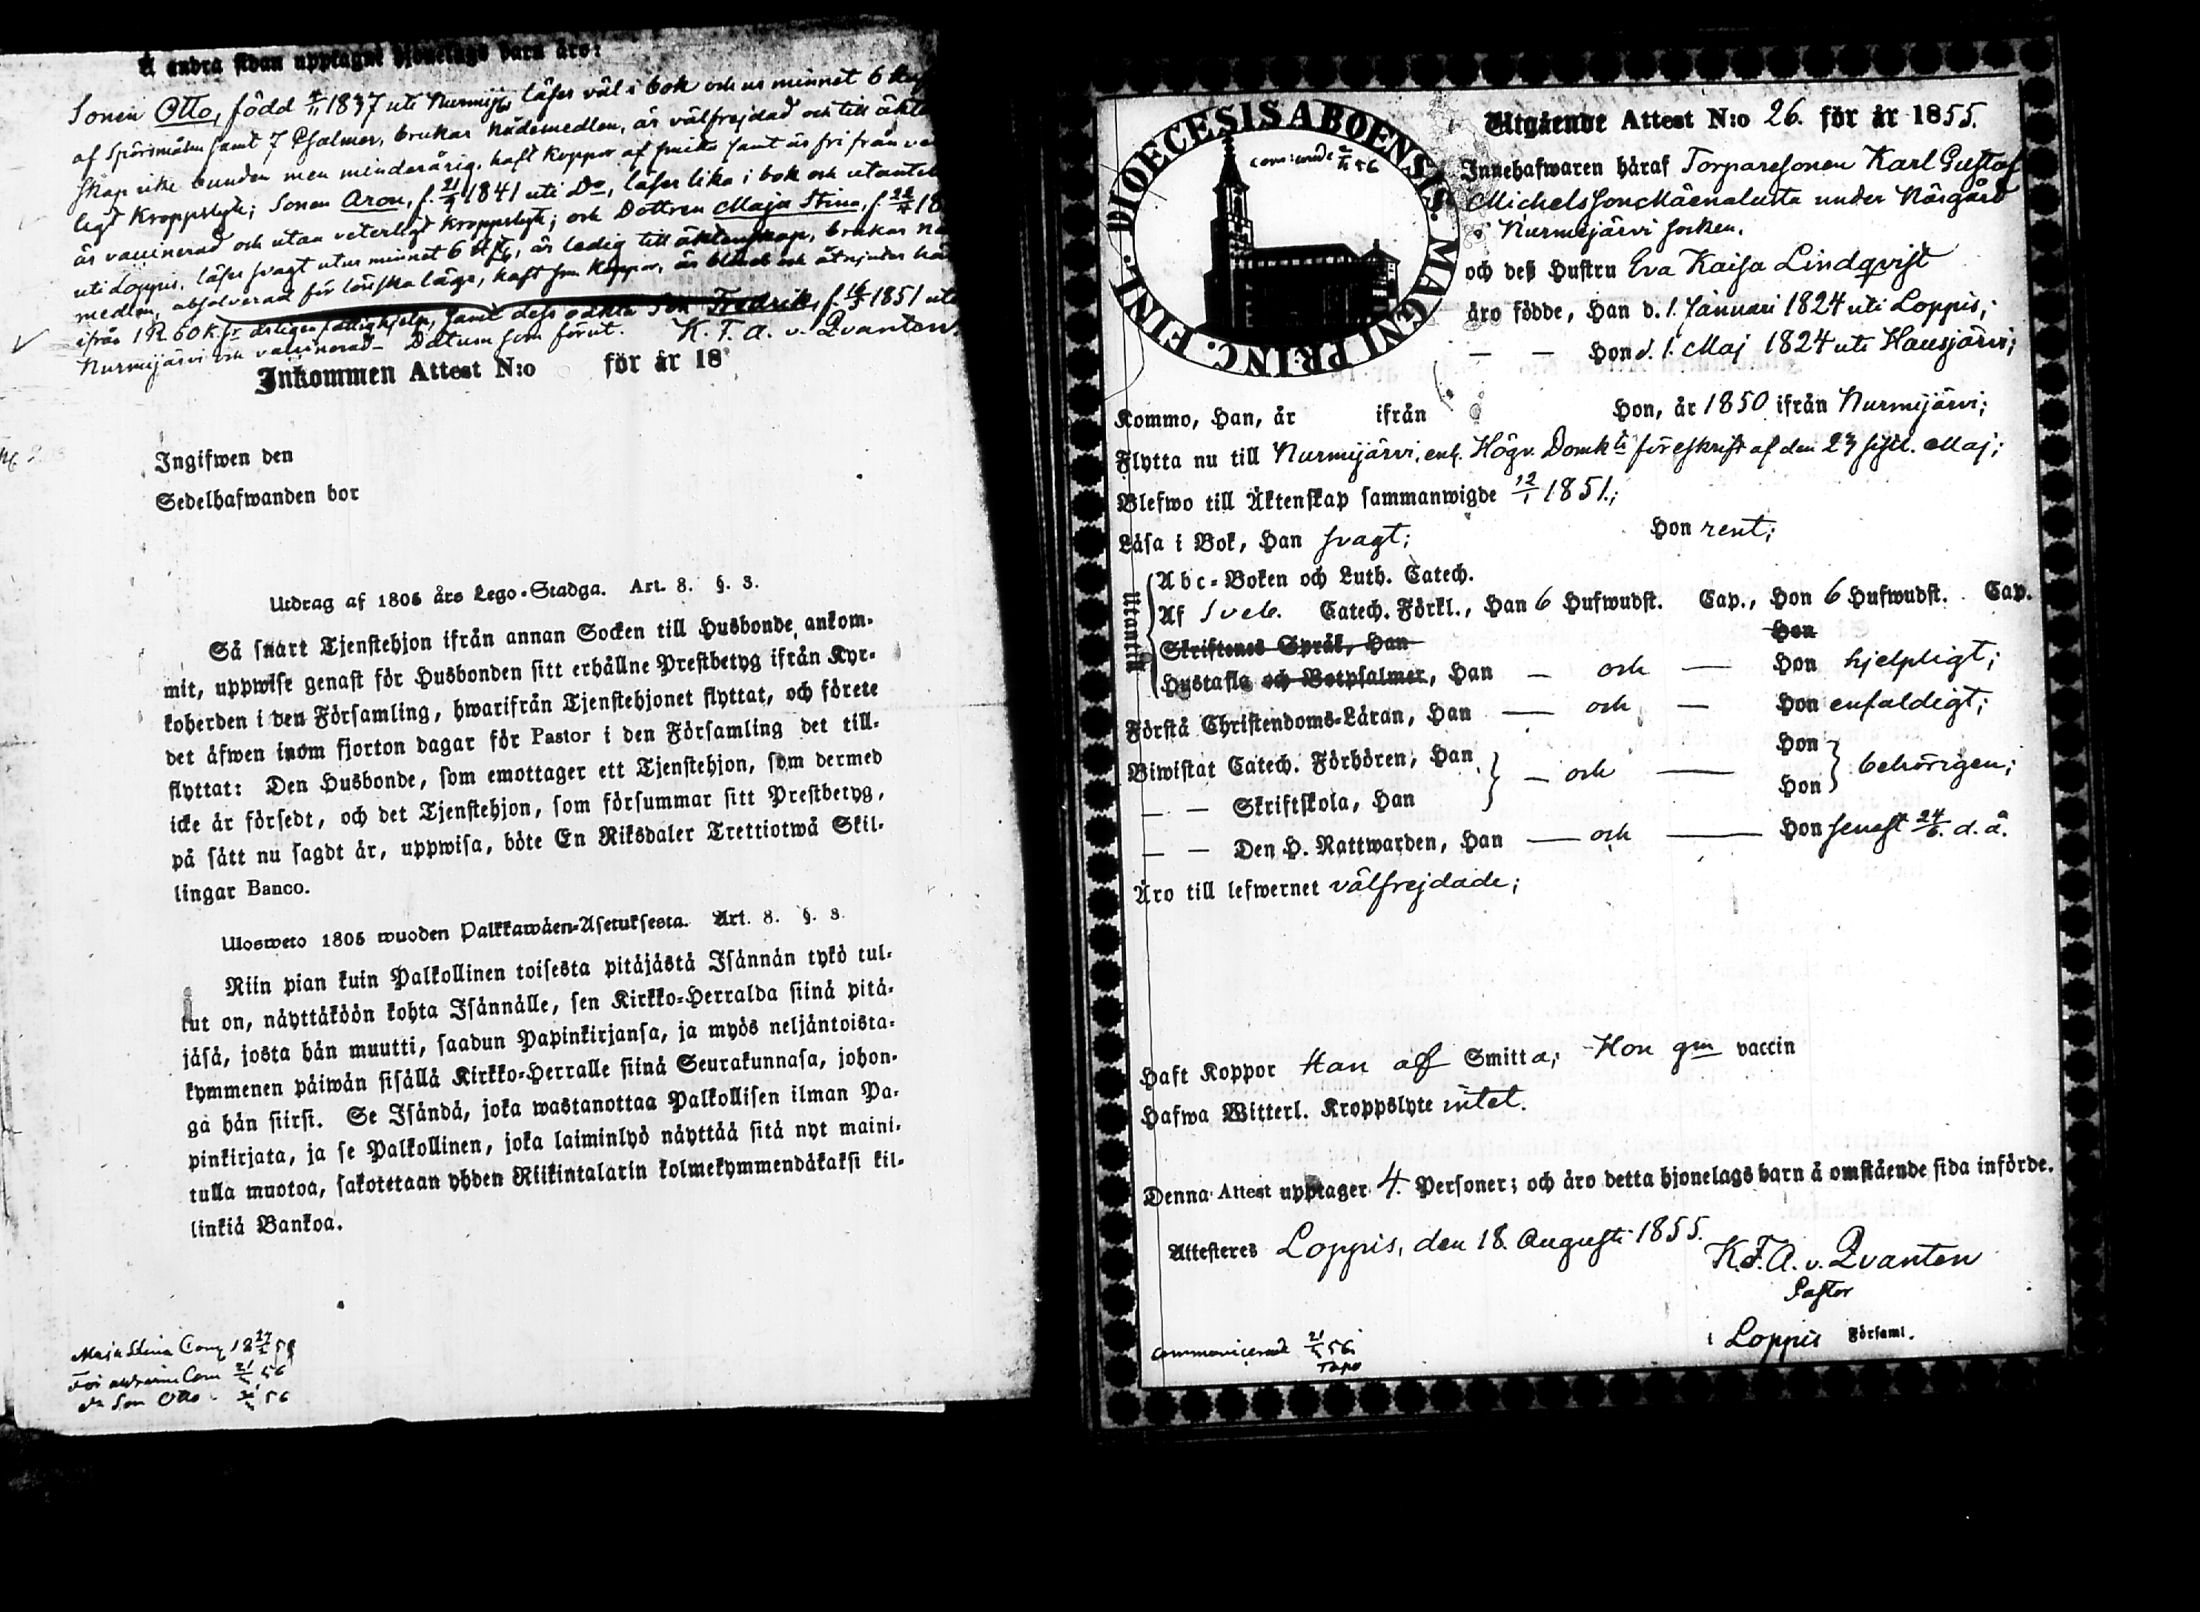 Å andra sidan upptagne hjonelags barn äro:
Sonen Otto, född 1837 uti Nurmijvi läser väl i bok och ur minnet 6
af Spörsmålen samt 7 Psalmer, brukar nådemedlen, är välfrejdad och till äkten
skap icke bunden men minderårig, haft koppor af smitta samt är fri från
ligt Kroppslyte; Sonen Aron, f. 21/3 1841 uti Do, läser lika i bok och utantill
är vaccinerad och utan veterligt kroppslyte; och Dottren Maja Stina, f.
uti Loppis, läser svagt utur minnet 6 är ledig till äktenskap, brukar
medlen, absolverad för lönskaläge, haft koppor, är blind och åtnjuter
ifrån 1 R. 60 K. Sr årligen fattighjelp, samt dess oäkta Son Fredrik, f. 16/3 1851 uti
Nurmijärvi och vaccinerad. Datum som förut. K. F. A. v. Qvanten.
Inkommen Attest N:o för år 18
Ingifwen den
Sedelhafwanden bor
Utdrag af 1805 års Lego-Stadga. Art. 8. §. 3.
Så snart Tjenstehjon ifrån annan Socken till Husbonde ankom-
mit, uppwise genast för Husbonden sitt erhållne Prestbetyg ifrån Kyr-
koherden i den Församling, hwarifrån Tjenstehjonet flyttat, och förete
det äfwen inom fjorton dagar för Pastor i den Församling det till-
flyttat: Den Husbonde, som emottager ett Tjenstehjon, som dermed
icke är försedt, och det Tjenstehjon, som försummar sitt Prestbetyg,
på sätt nu sagdt är, uppwisa, böte En Riksdaler Trettiotwå Skil-
lingar Banco.
Ulosweto 1805 wuoden Palkkawäen-Asetuksesta. Art. 8. §. 3.
Niin pian kuin Palkollinen toisesta pitäjästä Isännän tykö tul-
lut on, näyttäköön kohta Isännälle, sen Kirkko-Herralda siinä pitä-
jäsä, josta hän muutti, saadun Papinkirjansa, ja myös neljäntoista-
kymmenen päiwän sisällä Kirkko-Herralle siinä Seurakunnasa, johon-
ga hän siirsi. Se Isändä, joka wastanottaa Palkollisen ilman Pa-
pinkirjata, ja se Palkollinen, joka laiminlyö näyttää sitä nyt maini-
tulla muotoa, sakotetaan yhden Riikintalarin kolmekymmendäkaksi kil-
linkiä Bankoa.
Maja Stina Com
För äldrarne Com 56
d:o Son Otto 56
DIOECESIS ABOENSIS. MAGNI PRINC. FINL.
Utgående Attest N:o 26. för år 1855.
Innehafwaren häraf Torparesonen Karl Gustaf
Michelsson Mäenalusta under Närgård
i Nurmijärvi socken.
och deß Hustru Eva Kaisa Lindqvist
äro födde, Han d. 1. Januari 1824 uti Loppis;
— — Hon d. 1. Maj 1824 uti Hausjärvi;
Kommo, Han, år ifrån Hon, år 1850 ifrån Nurmijärvi;
Flytta nu till Nurmijärvi, enl. Högv. Domk:ts föreskrift af den 23 sistl. Maj;
Blefwo till Äktenskap sammanwigde 12/1 1851.;
Läsa i Bok, Han svagt; Hon rent;
Utantill
Abc-Boken och Luth. Catech.
Af Sveb. Catech. Förkl., Han 6 Hufwudst. Cap., Hon 6 Hufwudst. Cap.
Skriftenes Språk, Han Hon
Hustafla och Botpsalmer, Han — och — Hon hjelpligt;
Förstå Christendoms-Läran, Han — och — Hon enfaldigt;
Biwistat Catech. Förhören, Han — och — Hon behörigen;
— — Skriftskola, Han Hon
— — Den H. Nattwarden, Han — och — Hon senast 24/6. d. å.
Äro till lefwernet välfrejdade;
Haft Koppor Han af Smitta; Hon gm vaccin
Hafwa Witterl. Kroppslyte intet.
Denna Attest upptager 4. Personer; och äro detta hjonelags barn å omstående sida införde.
Attesteres Loppis, den 18. Augusti 1855.
K. F. A. v. Qvanten
Pastor
i Loppis Församl.
communicerade 56